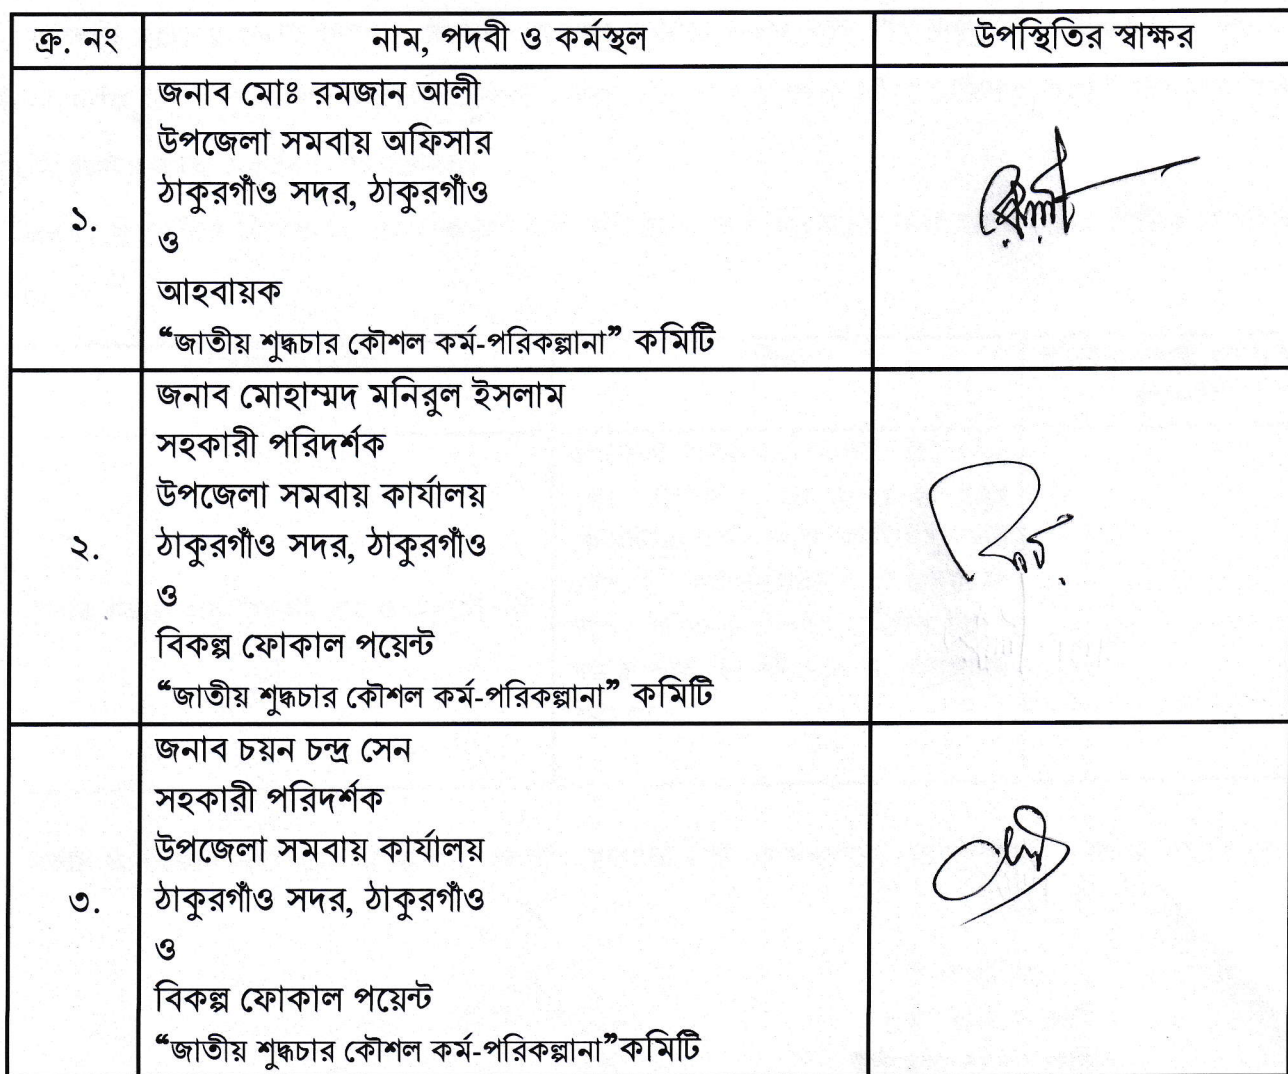 ক্র. নং নাম, পদবী ও কর্মস্থল উপস্থিতির স্বাক্ষর
জনাব মোঃ রমজান আলী
উপজেলা সমবায় অফিসার
ঠাকুরগাঁও সদর, ঠাকুরগাঁও
১.
ও
আহবায়ক
“জাতীয় শুদ্ধচার কৌশল কর্ম-পরিকল্পানা” কমিটি
জনাব মোহাম্মদ মনিরুল ইসলাম
সহকারী পরিদর্শক
উপজেলা সমবায় কার্যালয়
২. ঠাকুরগাঁও সদর, ঠাকুরগাঁও
ও
বিকল্প ফোকাল পয়েন্ট
“জাতীয় শুদ্ধচার কৌশল কর্ম-পরিকল্পানা” কমিটি
জনাব চয়ন চন্দ্র সেন
সহকারী পরিদর্শক
উপজেলা সমবায় কার্যালয়
৩. ঠাকুরগাঁও সদর, ঠাকুরগাঁও
ও
বিকল্প ফোকাল পয়েন্ট
“জাতীয় শুদ্ধচার কৌশল কর্ম-পরিকল্পানা”কমিটি